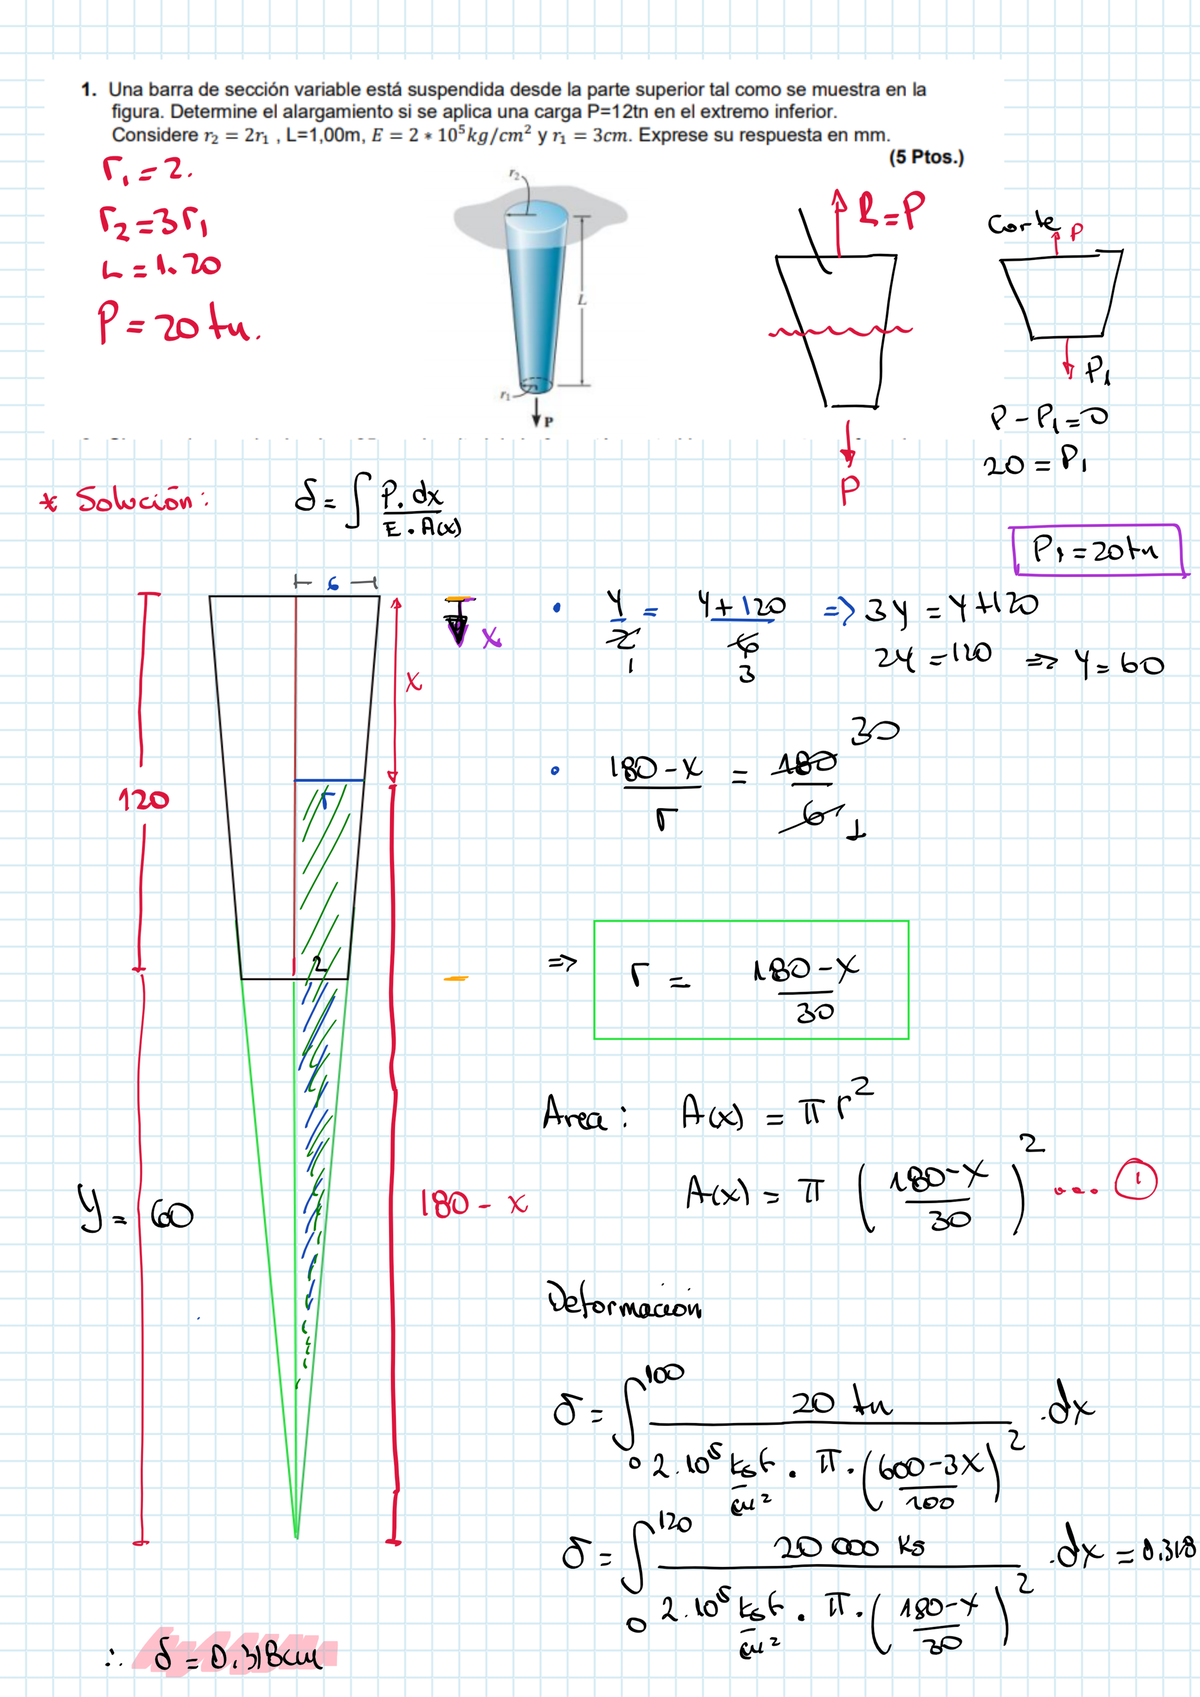 1. Una barra de sección variable está suspendida desde la parte superior tal como se muestra en la
figura. Determine el alargamiento si se aplica una carga P=12tn en el extremo inferior.
Considere r₂ = 2r₁ , L=1,00m, E = 2 * 10⁵kg/cm² y r₁ = 3cm. Exprese su respuesta en mm.
(5 Ptos.)
r₁ = 2.
r₂ = 3r₁
L = 1.20
P = 20 tn.
r₂
L
r₁
P
R = P
P
Corte
P
P₁
P - P₁ = 0
20 = P₁
P₁ = 20tn
* Solución:
δ = ∫ P. dx / E . A(x)
6
x
x
r
2
120
y = 60
180 - x
• y/2 = y+120/6 => 3y = y+120
1 3
2y = 120 => y = 60
• 180-x / r = 180/6 30 1
=> r = 180-x / 30
Area : A(x) = π r²
A(x) = π ( 180-x / 30 )² ... ①
Deformacion
δ = ∫₀¹⁰⁰ 20 tn / 2.10⁵ kgf/cm² . π . ( 600-3x / 100 )² .dx
δ = ∫₀¹²⁰ 20 000 kg / 2.10⁵ kgf/cm² . π . ( 180-x / 30 )² .dx = 0.318
∴ δ = 0.318cm